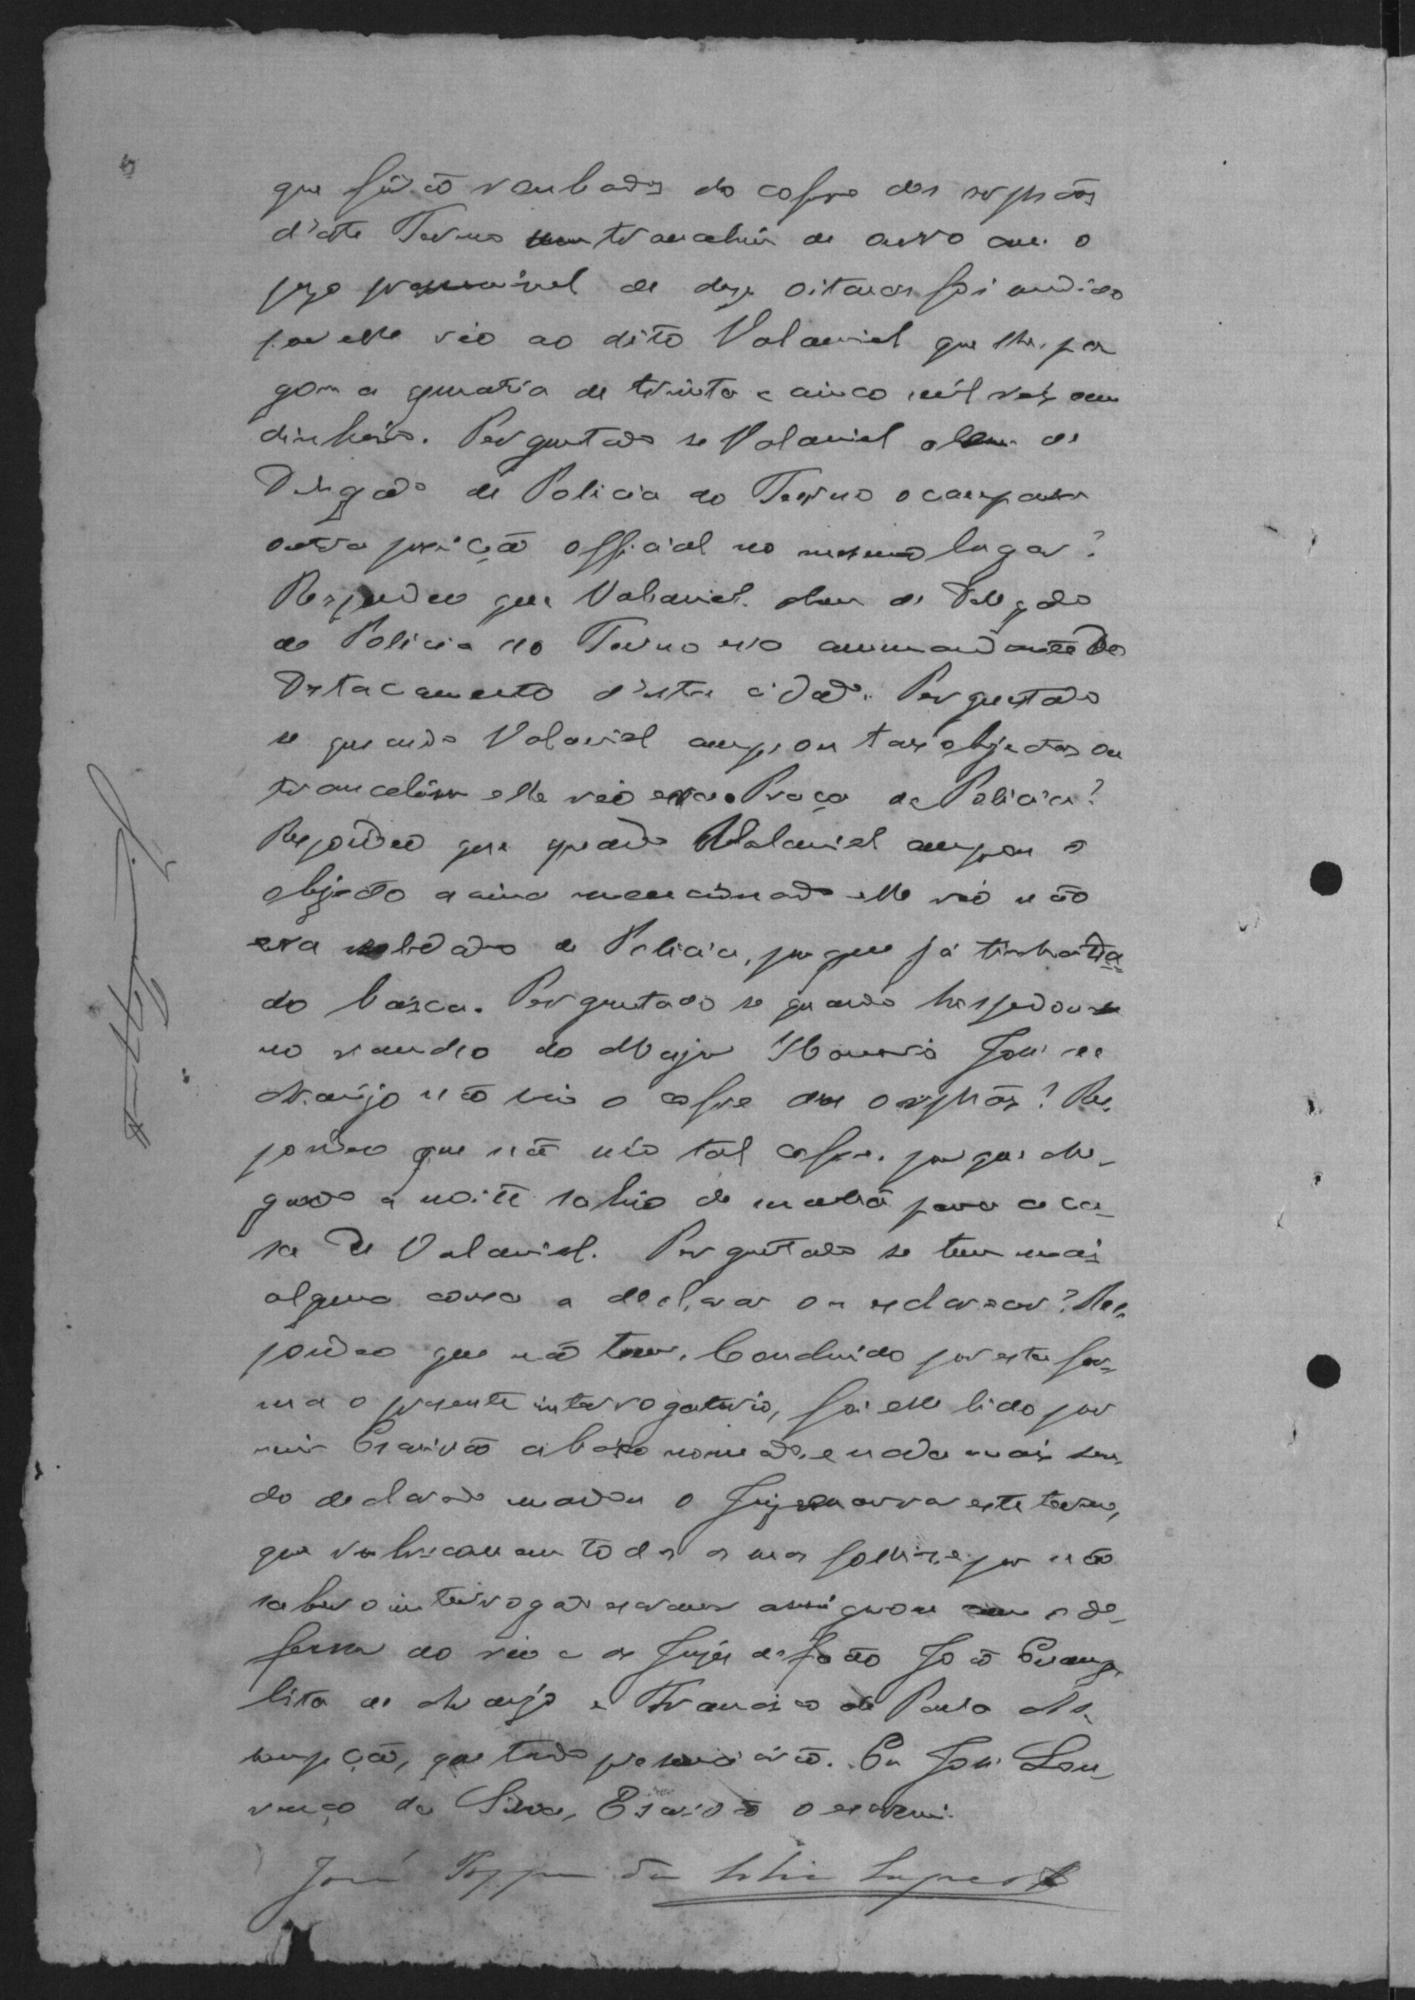 que forão roubados do cofre dos orphãos
d'este Termo um trancelin de ouro com o
pezo provavel de doze oitavas foi vendido
por elle réo ao dito Valaniel que lhe pa
gou a quantia de trinta e cinco mil reis em
dinheiro. Perguntado se Valaniel alem de
Delegado de Policia do Termo occupava
outra posição official no mesmo lugar?
Respondeo que Valaniel alem de Delegado
de Policia do Termo era commandante do
Destacamento d'esta cidade. Perguntado
se quando Valaniel comprou taes objectos ou
trancelim elle réo era Praça de Policia?
Respondeo que quando Valaniel comprou o
objecto acima mencionado elle réo não
era soldado de Policia, porque já tinha da
do baixa. Perguntado se quando hospedou-se
no rancho do Major Honorio José de
Araujo não vio o cofre dos orphãos? Res
pondeo que não vio tal cofre, porque che-
gando a noite sahio de manhã para a ca-
sa de Valaniel. Perguntado se tem mais
alguma cousa a declarar ou esclarecer? Res
pondeo que não tem. Concluido por esta for-
ma o presente interrogatorio, foi elle lido por
mim Escrivão abaixo nomeado, e nada mais sen-
do declarado mandou o Juiz lavrar este termo,
que rubricou em todas as suas folhas e por não
saber o interrogado escrever assignou com o de-
fensor do réo e os Juizes de facto João Evange
lista de Araujo e Francisco de Paula As
sumpção, que tudo presenciarão. Eu José Lou-
renço da Silva, Escrivão o escrevi.
José da Silva